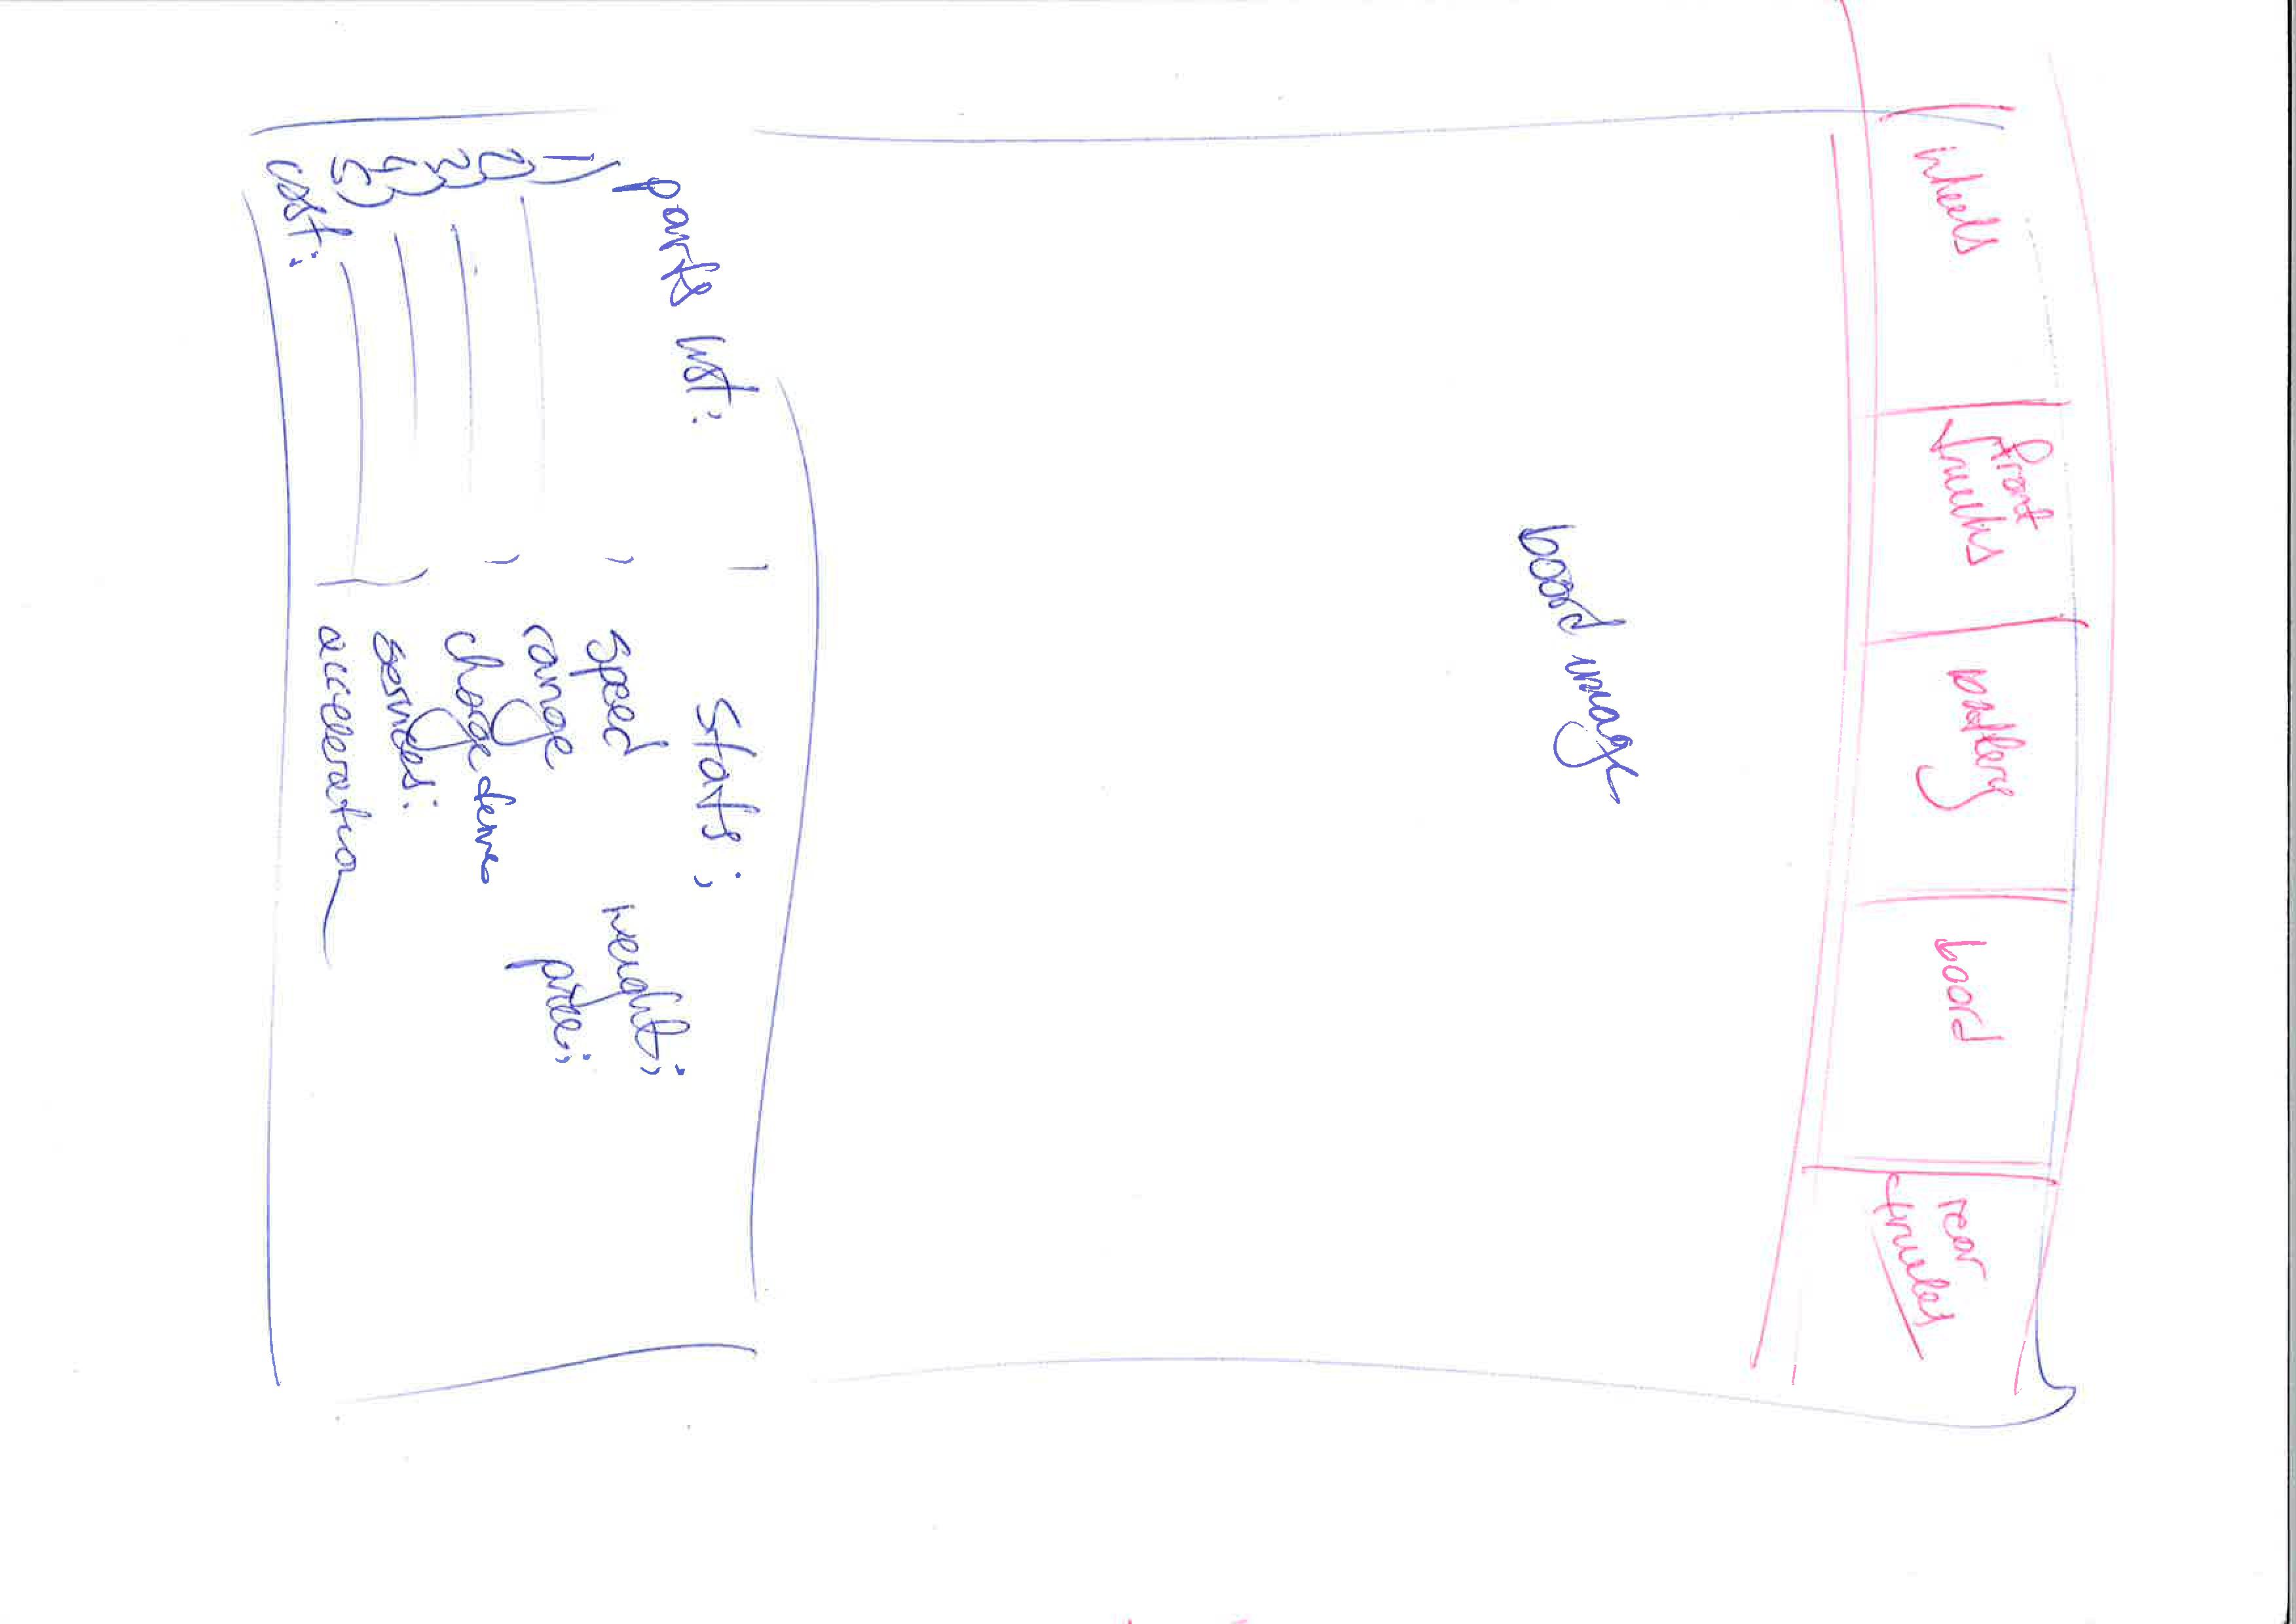 wheels
front
trucks
battery
board
rear
trucks
board image
parts list:
1)
2)
3)
4)
5)
cost:
Stats:
speed
range
charge time
services:
acceleration
weight:
price: